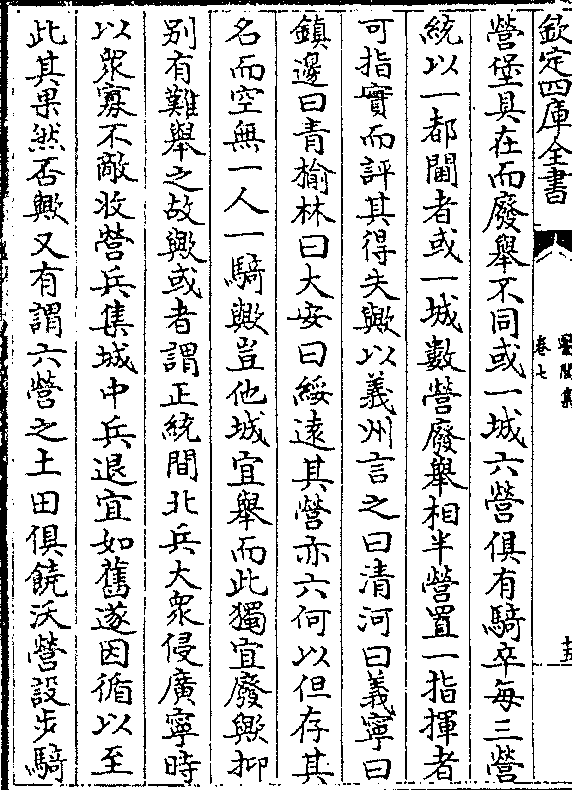 欽定四庫全書
醫閭集
卷七
十五
營堡具在而廢舉不同或一城六營俱有騎卒每三營
統以一都閫者或一城數營廢舉相半營置一指揮者
可指實而評其得失歟以義州言之曰清河曰義寧曰
鎮邊曰青榆林曰大安曰綏遠其營亦六何以但存其
名而空無一人一騎歟豈他城宜舉而此獨宜廢歟抑
别有難舉之故歟或者謂正統間北兵大衆侵廣寧時
以衆寡不敵收營兵集城中兵退宜如舊遂因循以至
此其果然否歟又有謂六營之土田俱饒沃營設步騎